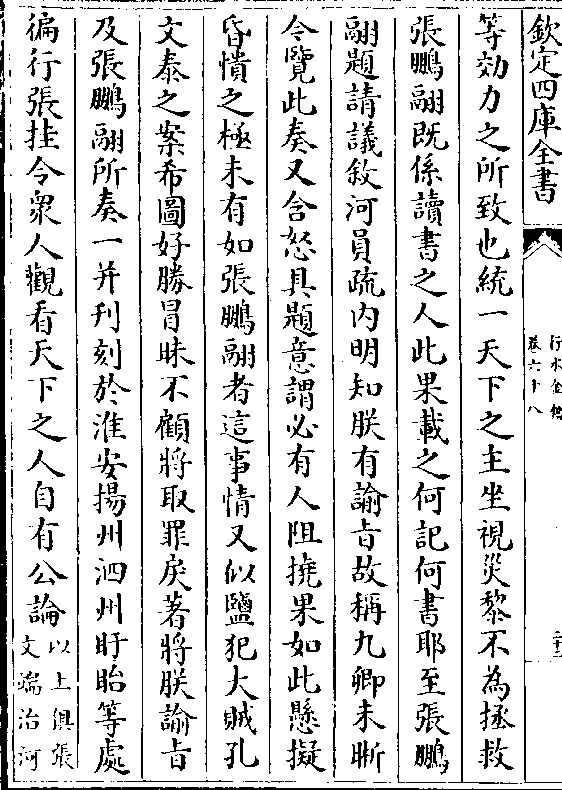 欽定四庫全書
行水金鑑
卷六十八
等効力之所致也統一天下之主坐視災黎不為拯救
張鵬翮既係讀書之人此果載之何記何書耶至張鵬
翮題請議敘河員疏内明知朕有諭旨故稱九卿未晰
今覽此奏又含怒具題意謂必有人阻撓果如此懸擬
昏憒之極未有如張鵬翮者這事情又似鹽犯大賊孔
文泰之案希圖好勝冒昧不顧將取罪戾著將朕諭旨
及張鵬翮所奏一并刋刻於淮安揚州泗州盱眙等處
徧行張挂令衆人觀看天下之人自有公論
以上俱張
文端治河